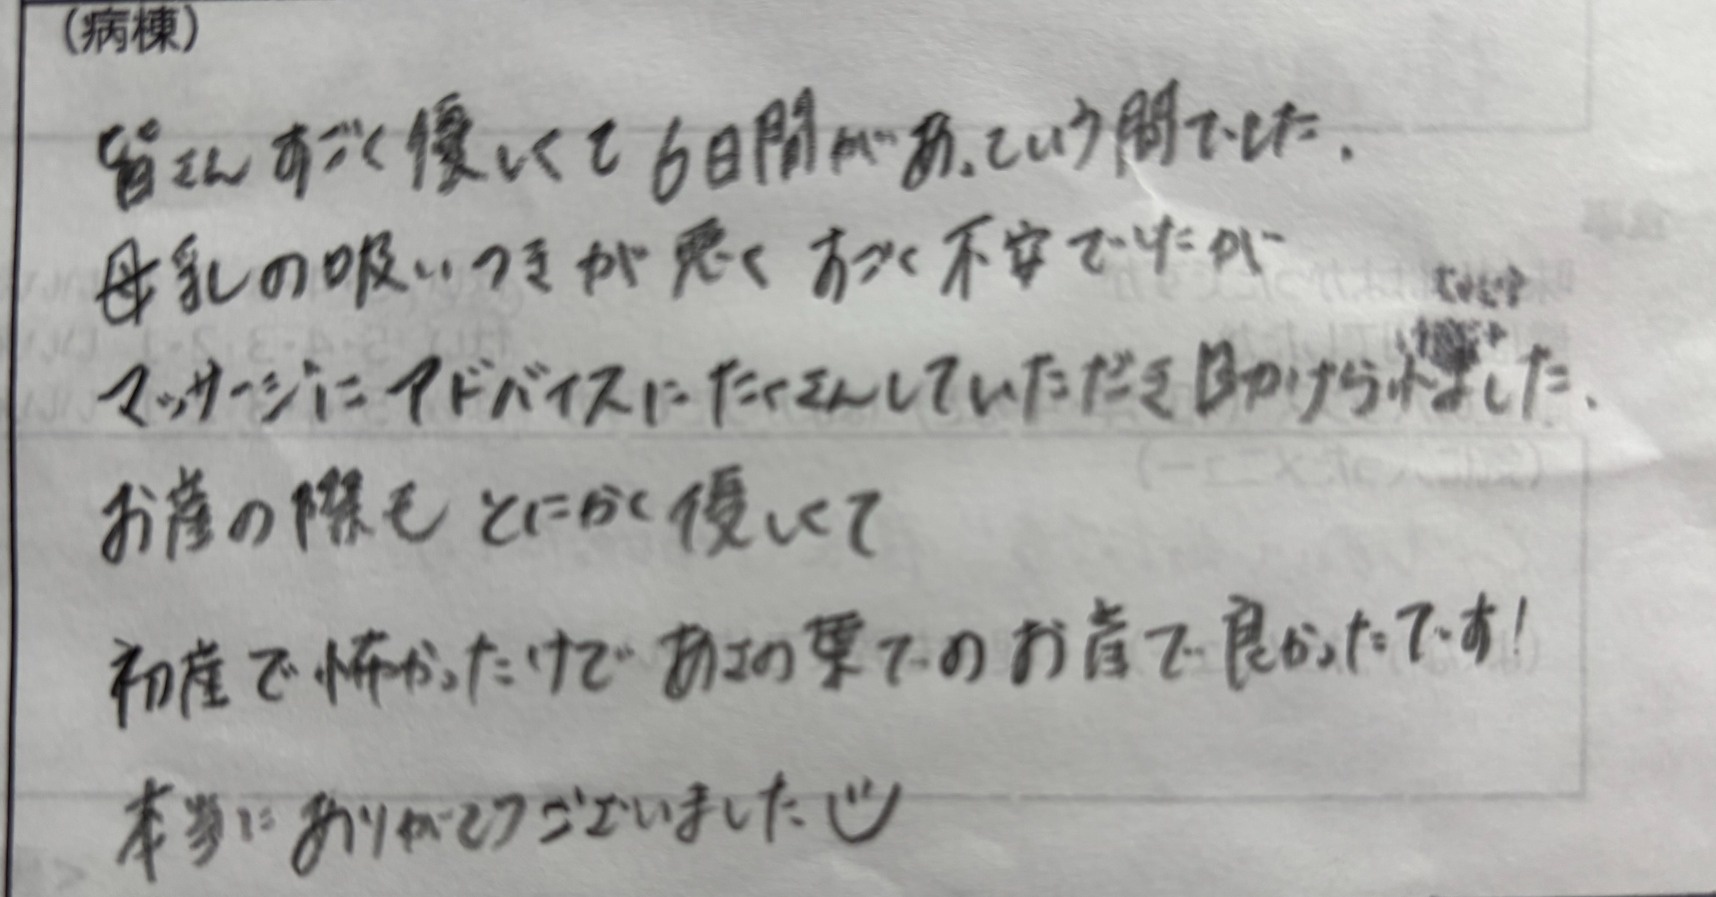 (病棟)
皆さんすごく優しくて6日間があっという間でした.
母乳の吸いつきが悪くすごく不安でしたが
マッサージにアドバイスにたくさんしていただき助けられました.
お産の際もとにかく優しくて
初産で怖かったけどあさの葉でのお産で良かったです!
本当にありがとうございました